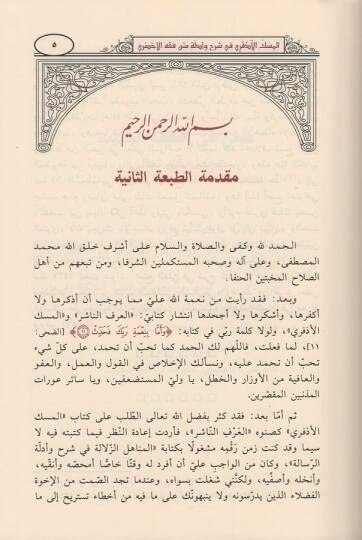 المسك الأذفري في شرح وأدلة متن فقه الأخضري
٥
بسم الله الرحمن الرحيم
مقدمة الطبعة الثانية
الحمد لله وكفى والصلاة والسلام على أشرف خلق الله محمد
المصطفى، وعلى آله وصحبه المستكملين الشرفا، ومن تبعهم من أهل
الصلاح المخبتين الحنفا.
وبعد: فقد رأيت من نعمة الله عليّ مما يوجب أن أذكرها ولا
أكفرها، وأشكرها ولا أجحدها انتشار كتابيَّ: «العرف الناشر» و«المسك
الأذفري»، ولولا كلمة ربّي في كتابه: ﴿وَأَمَّا بِنِعْمَةِ رَبِّكَ فَحَدِّثْ﴾ [الضحى:
١١]، لما فعلت، فاللّهم لك الحمد كما تحبّ أن تحمد، على كلّ شيء
تحبّ أن تحمد عليه، ونسألك الإخلاص في القول والعمل، والعفو
والعافية من الأوزار والخطل، يا وليّ المستضعفين، ويا ساتر عورات
المذنبين المقصّرين.
ثم أمّا بعد: فقد كثر بفضل الله تعالى الطّلب على كتاب «المسك
الأذفري» كصنوه «العَرْفِ النّاشر»، فأردت إعادة النّظر فيما كتبته فيه لا
سيما وقد كنت زمن رَقْمِه مشغولًا بكتابة «المناهل الزّلالة في شرح وأدلّة
الرّسالة»، وكان من الواجب عليّ أن أفرد له وقتًا خاصًّا أمحصه وأنقّيه،
وأنخله وأصفّيه، ولكنّني شغلت بسواه، وعندما تجد الصّمت من الإخوة
الفضلاء الذين يدرسونه ولا ينبهونك على ما فيه من أخطاء تستريح إلى ما